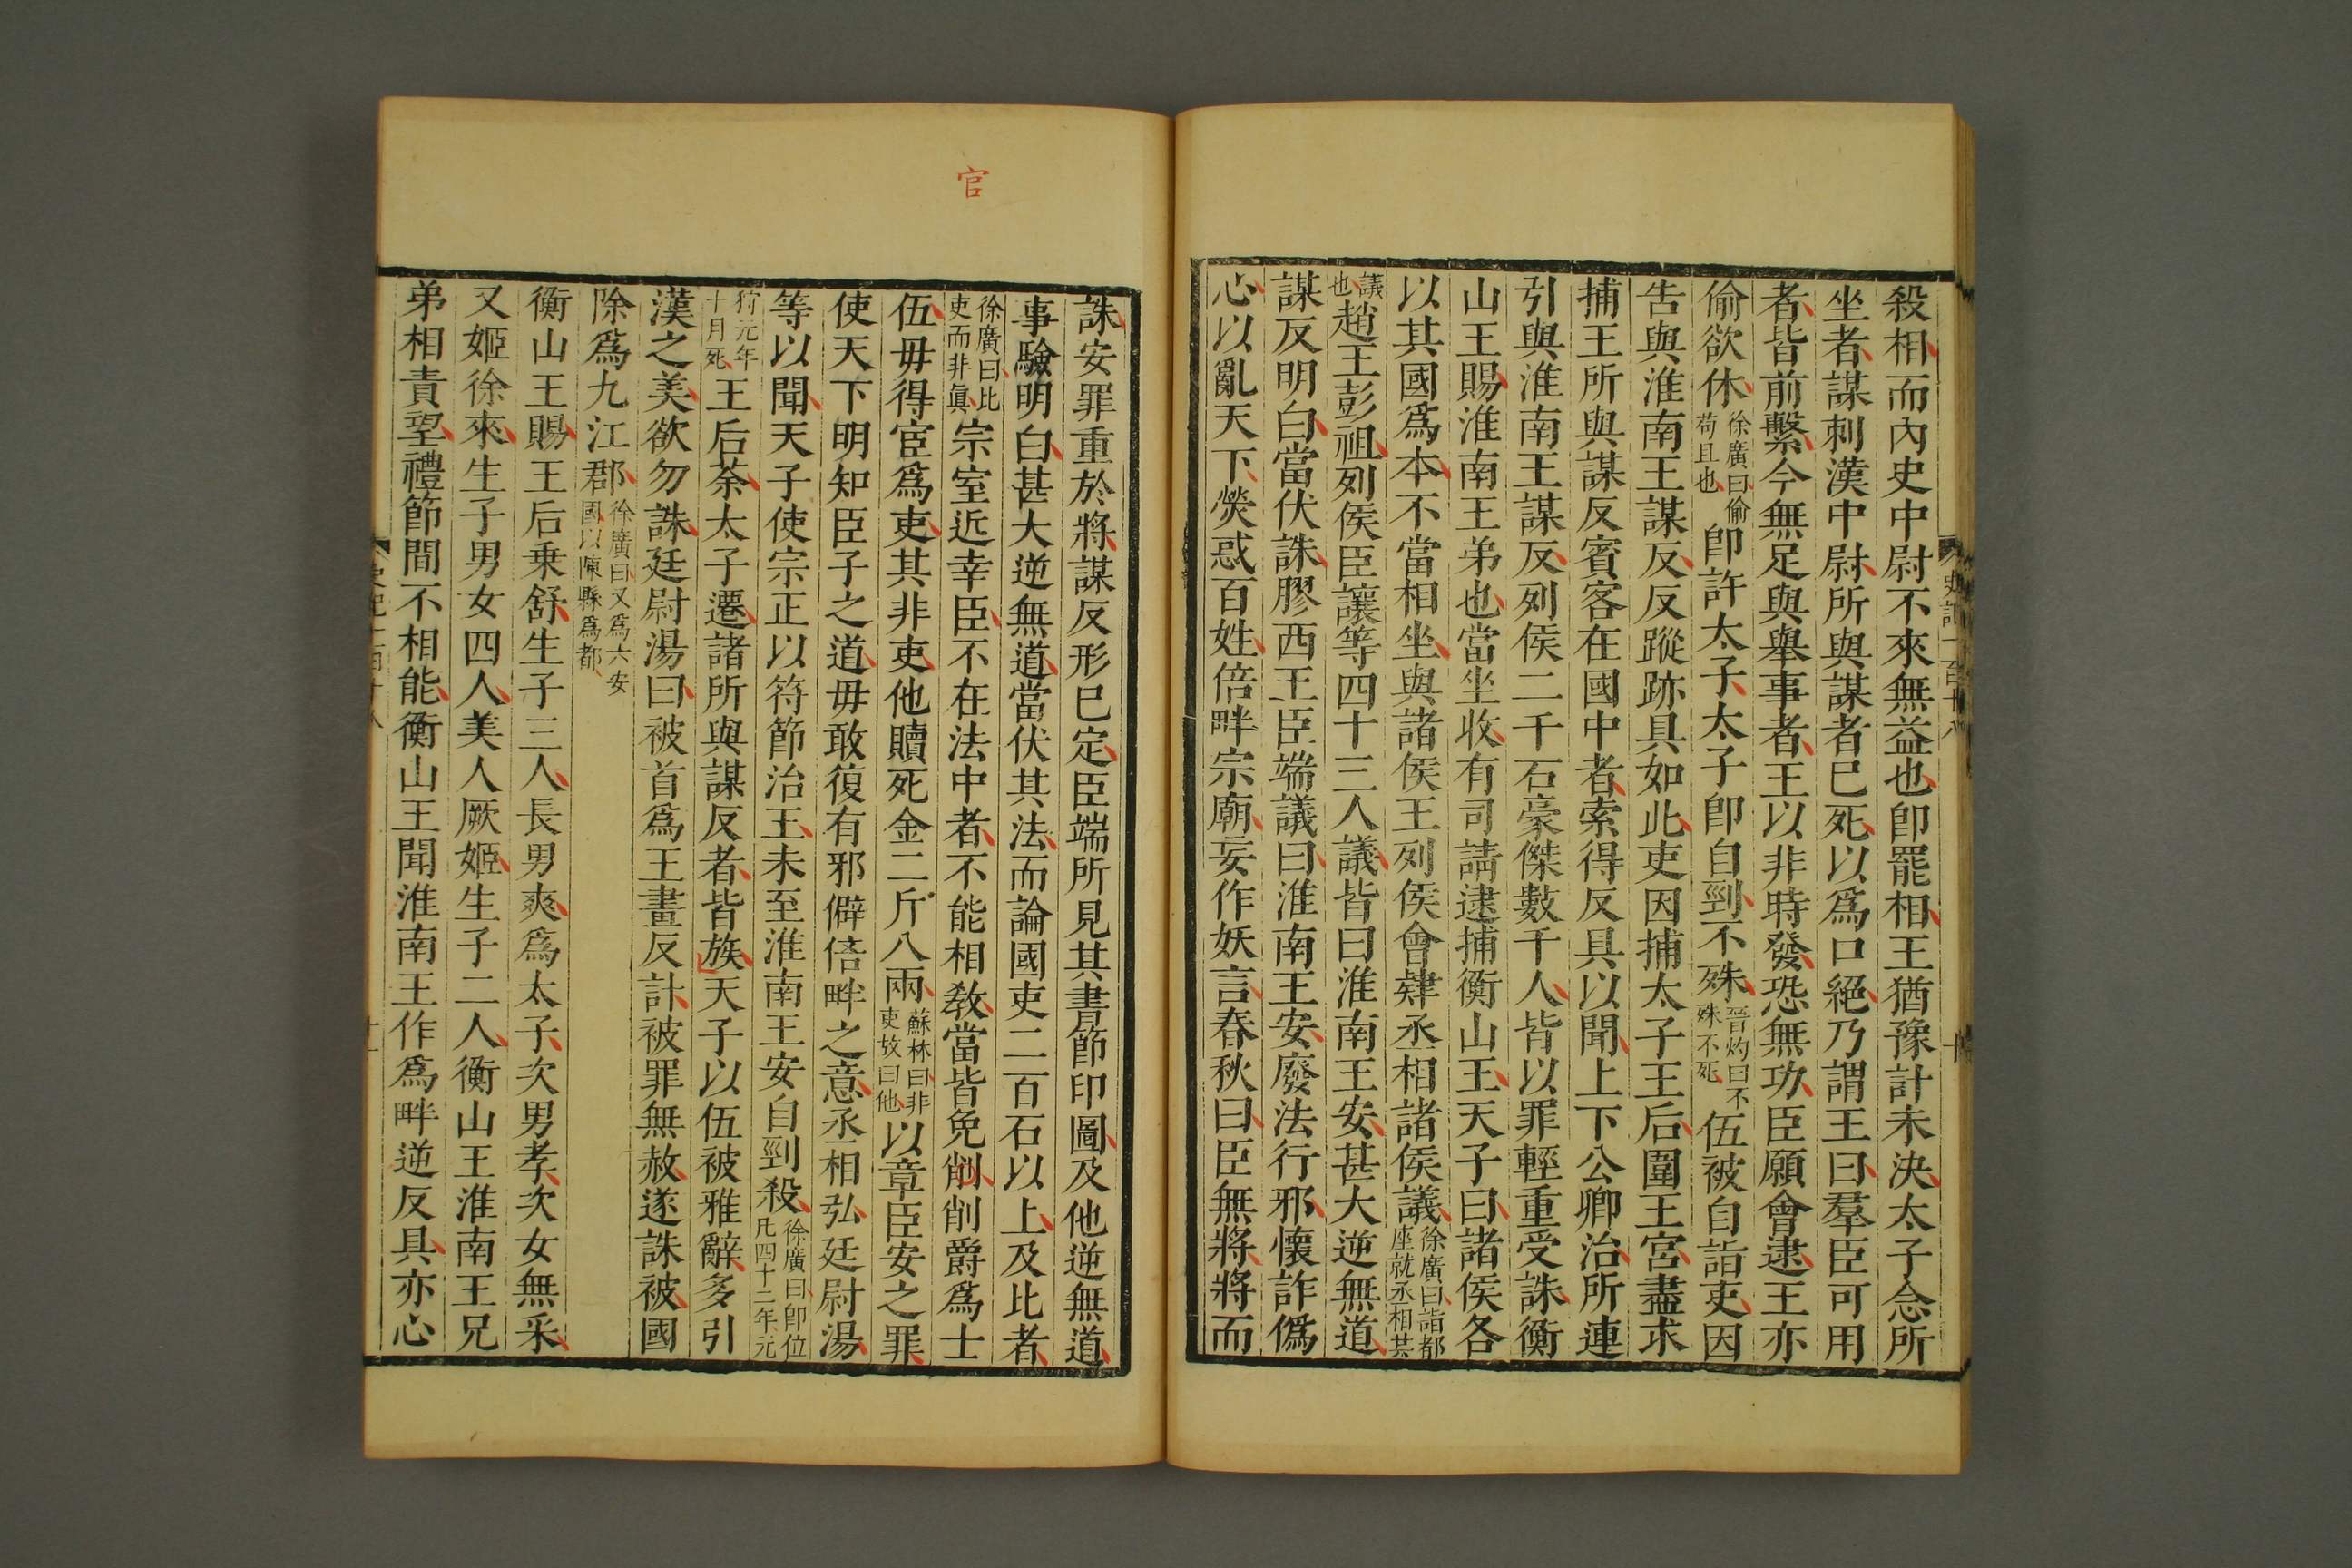 殺相而內史中尉不來無益也卽罷相王猶豫計未決太子念所
坐者謀刺漢中尉所與謀者巳死以爲口絕乃謂王曰羣臣可用
者皆前繫今無足與舉事者王以非時發恐無功臣願會逮王亦
偷欲休徐廣曰偷苟且也卽許太子太子卽自剄不殊晉灼曰不殊不死伍被自詣吏因
告與淮南王謀反反蹤跡具如此吏因捕太子王后圍王宮盡求
捕王所與謀反賓客在國中者索得反具以聞上下公卿治所連
引與淮南王謀反列侯二千石豪傑數千人皆以罪輕重受誅衡
山王賜淮南王弟也當坐收有司請逮捕衡山王天子曰諸侯各
以其國爲本不當相坐與諸侯王列侯會肄丞相諸侯議徐廣曰詣都座就丞相共
議也趙王彭祖列侯臣讓等四十三人議皆曰淮南王安甚大逆無道
謀反明白當伏誅膠西王臣端議曰淮南王安廢法行邪懷詐僞
心以亂天下熒惑百姓倍畔宗廟妄作妖言春秋曰臣無將將而
史記一百十八
十
官
誅安罪重於將謀反形巳定臣端所見其書節印圖及他逆無道
事驗明白甚大逆無道當伏其法而論國吏二百石以上及比者
徐廣曰比吏而非眞宗室近幸臣不在法中者不能相敎當皆免削削爵爲士
伍毋得宦爲吏其非吏他贖死金二斤八兩蘇林曰非吏故曰他以章臣安之罪
使天下明知臣子之道毋敢復有邪僻倍畔之意丞相弘廷尉湯
等以聞天子使宗正以符節治王未至淮南王安自剄殺徐廣曰卽位凡四十二年元
狩元年十月死王后荼太子遷諸所與謀反者皆族天子以伍被雅辭多引
漢之美欲勿誅廷尉湯曰被首爲王畫反計被罪無赦遂誅被國
除爲九江郡徐廣曰又爲六安國以陳縣爲都
衡山王賜王后乗舒生子三人長男爽爲太子次男孝次女無采
又姬徐來生子男女四人美人厥姬生子二人衡山王淮南王兄
弟相責望禮節間不相能衡山王聞淮南王作爲畔逆反具亦心
史記一百十八
十一